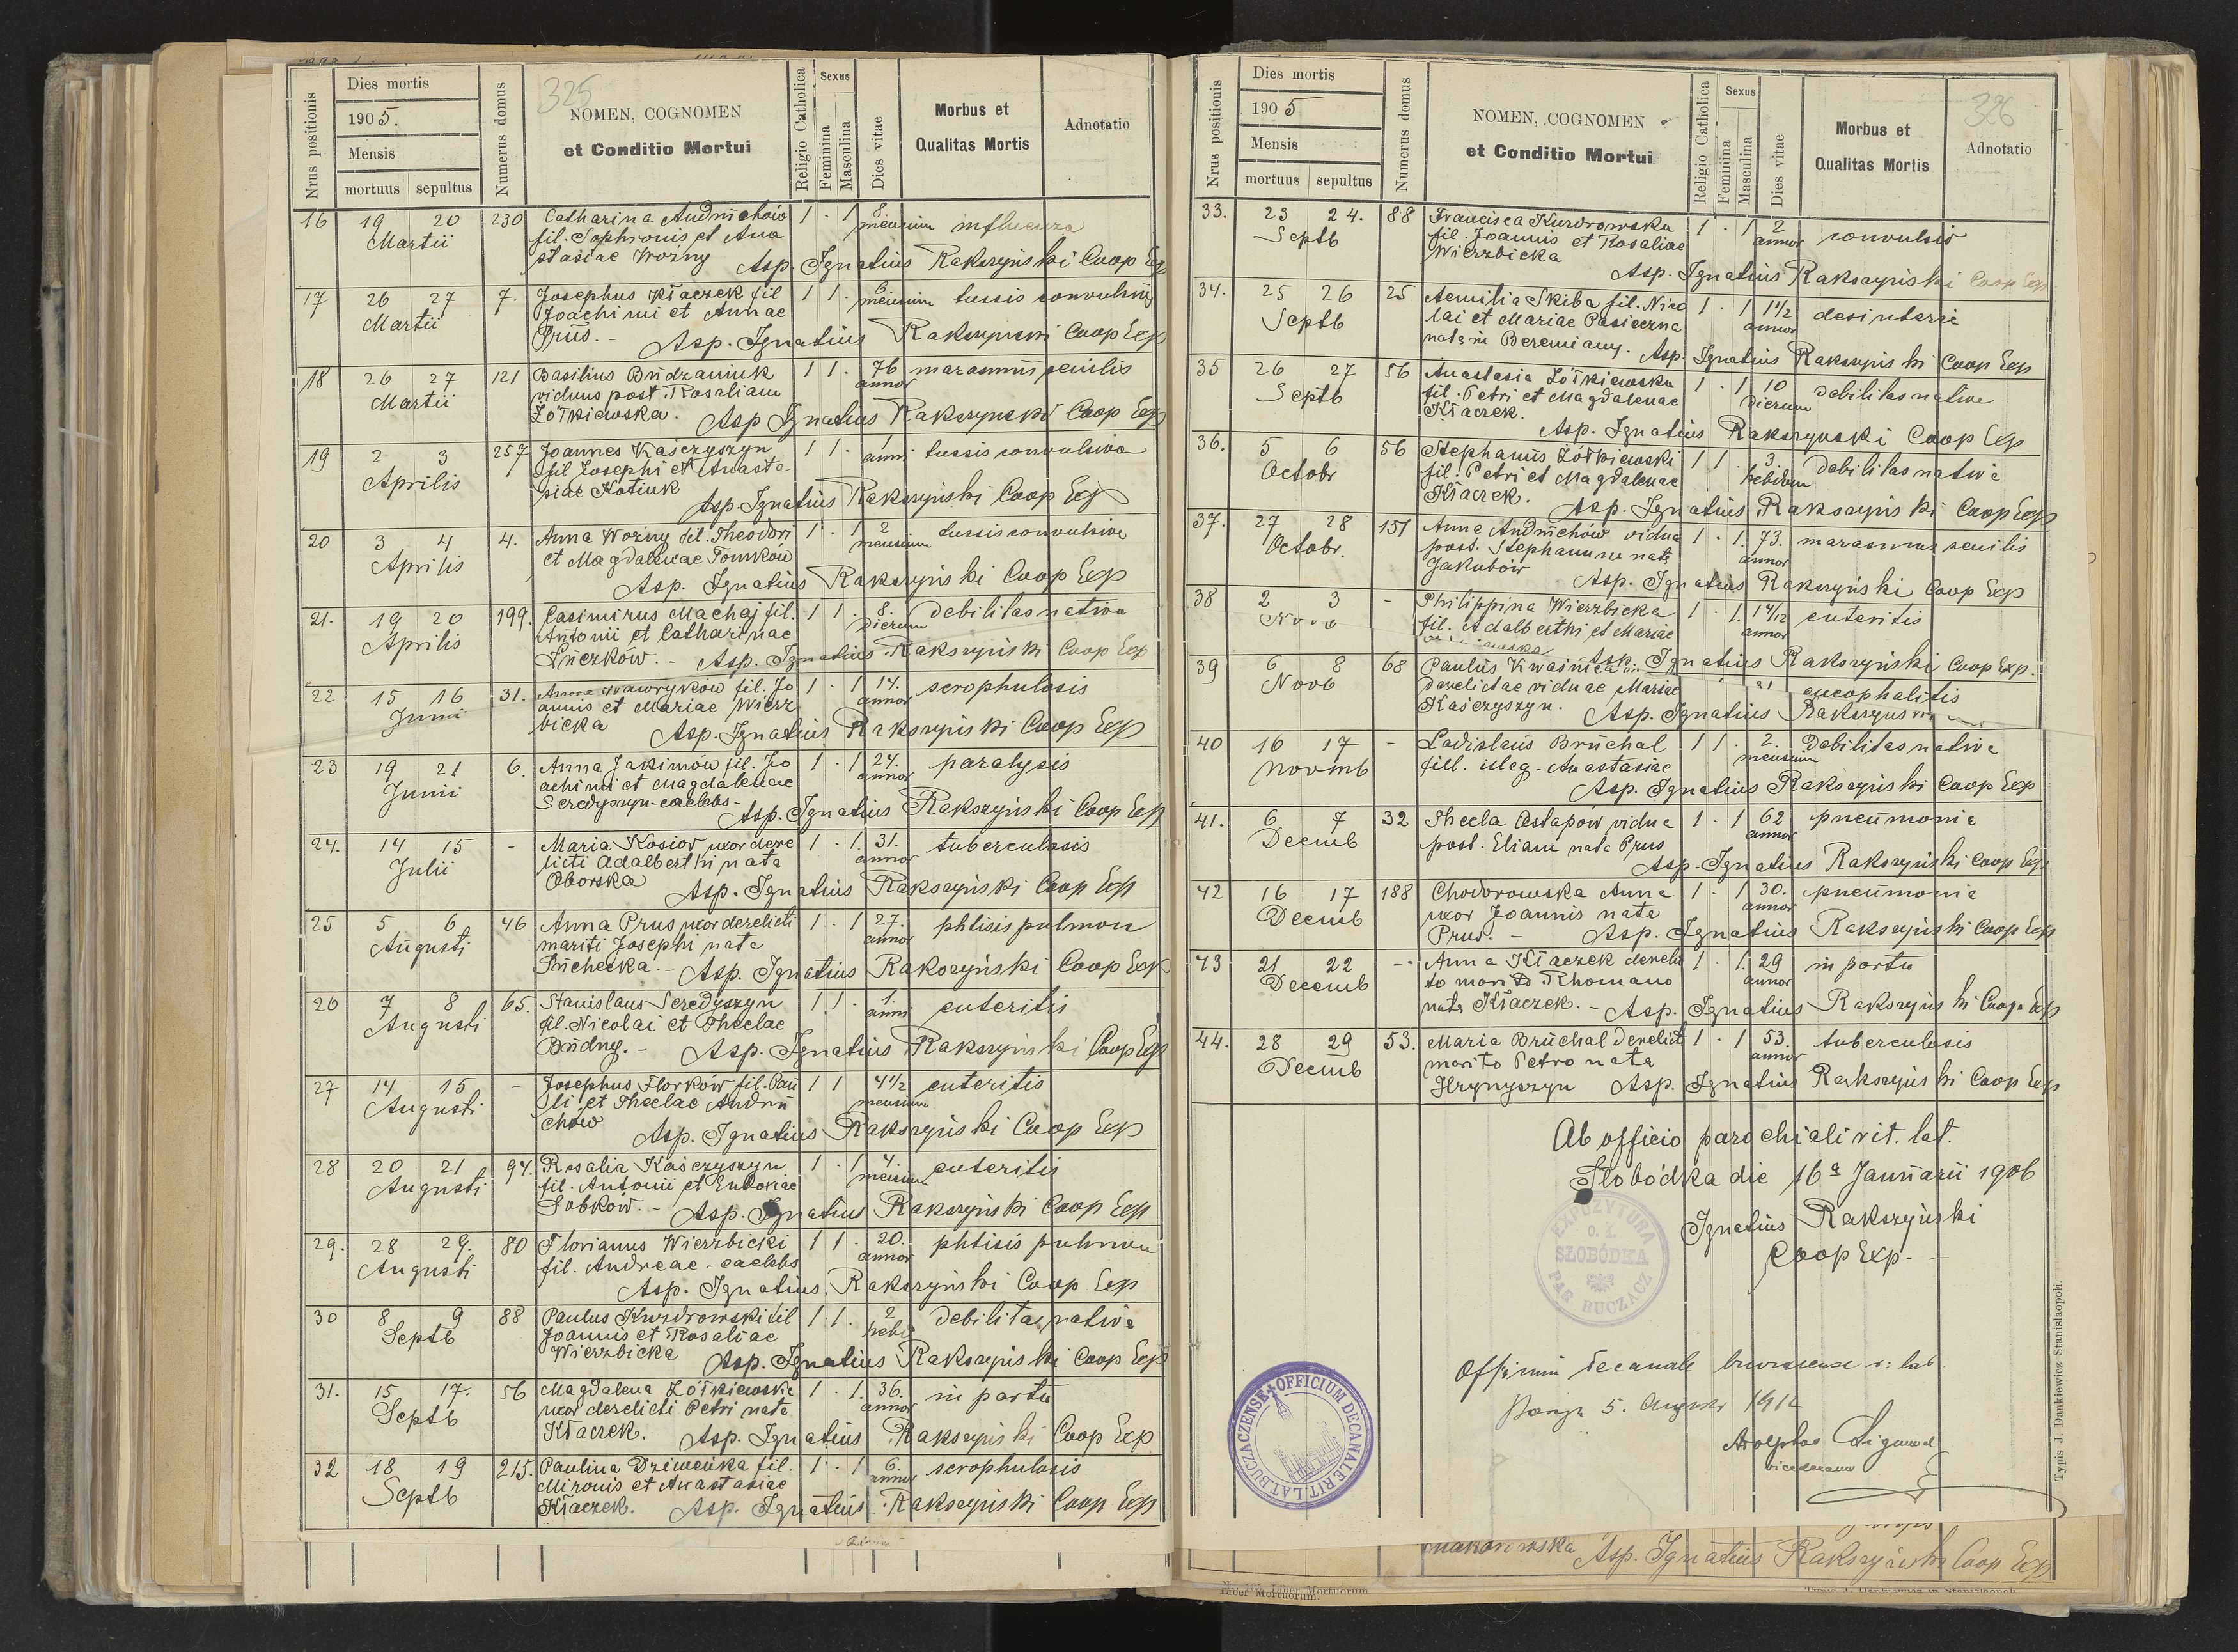 325
Nrus positionis
Dies mortis
1905.
Mensis
mortuus sepultus
Numerus domus
NOMEN, COGNOMEN
et Conditio Mortui
Religio Catholica
Sexus
Feminina
Masculina
Dies vitae
Morbus et
Qualitas Mortis
Adnotatio
16 19 20 230 Catharina Andruchów 1 · 1 8
Martii fil. Sophronis et Ana mensium influenza
stasiae Woźny Asp. Ignatius Rakszyński Coop Exp
17 26 27 7. Josephus Kłaczek fil 1 1 · 6
Martii Joachimi et Annae mensium tussis convulsiva
Prus. - Asp. Ignatius Rakszyński Coop Exp
18 26 27 121 Basilius Budzaniuk 1 1 · 76 marasmus senilis
Martii viduus post. Rosaliam annor
Żółkiewska. Asp Ignatius Rakszyński Coop Exp
19 2 3 257 Joannes Kaśczyszyn 1 1 · 1
Aprilis fil Josephi et Anasta anni tussis convulsiva
siae Kotiuk Asp. Ignatius Rakszyński Coop Exp
20 3 4 4. Anna Woźny fil. Theodori 1 · 1 2 tussis convulsiva
Aprilis et Magdalenae Tomków mensium
Asp. Ignatius Rakszyński Coop Exp
21. 19 20 199. Casimirus Machaj fil. 1 1 · 8. debilitas nativa
Aprilis Antonii et Catharinae dierum
Łuczków. - Asp. Ignatius Rakszyński Coop Exp
22 15 16 31. Anna Wawryków fil. Jo 1 · 1 14. scrophulosis
Junii annis et Mariae Wierz annor
bicka Asp. Ignatius Rakszyński Coop Exp
23 19 21 6. Anna Jakimów fil. Jo 1 · 1 24. paralysis
Junii achimi et Magdalenae annor
Seredyszyn - caelebs - Asp. Ignatius Rakszyński Coop Exp
24. 14 15 - Maria Kosior uxor dere 1 · 1. 31. tuberculosis
Julii licti Adalberthi nata annor
Oborska Asp. Ignatius Rakszyński Coop Exp
25 5 6 46 Anna Prus uxor derelicti 1 · 1 27. phtisis pulmon
Augusti mariti Josephi nata annor
Puchecka. - Asp. Ignatius Rakszyński Coop Exp
26 7 8 65. Stanislaus Seredyszyn 1 1 · 1. enteritis
Augusti fil. Nicolai et Theclae anni
Budny. - Asp. Ignatius Rakszyński Coop Exp
27 14 15 - Josephus Florków fil. Pau 1 1 4 1/2 enteritis
Augusti li et Theclae Andru mensium
chów Asp. Ignatius Rakszyński Coop Exp
28 20 21 94. Rosalia Kaśczyszyn 1 · 1 4. enteritis
Augusti fil. Antonii et Eudoxiae mensium
Sobków. - Asp. Ignatius Rakszyński Coop Exp
29. 28 29. 80 Florianus Wierzbicki 1 1 · 20. phtisis pulmon
Augusti fil. Andreae - caelebs annor
Asp. Ignatius Rakszyński Coop Exp
30 8 9 88 Paulus Kurdrowski fil 1 1 · 2 debilitas nativa
Septb Joannis et Rosaliae hebd
Wierzbicka Asp. Ignatius Rakszyński Coop Exp
31. 15 17. 56 Magdalena Żółkiewska 1 · 1. 36. in partu
Septb uxor derelicti Petri nata annor
Kłaczek. Asp. Ignatius Rakszyński Coop Exp
32 18 19 215. Paulina Dziweńka fil. 1 · 1 6. scrophulosis
Septb Mironis et Anastasiae annor
Kłaczek. Asp. Ignatius Rakszyński Coop Exp
326
Nrus positionis
Dies mortis
1905
Mensis
mortuus sepultus
Numerus domus
NOMEN, COGNOMEN
et Conditio Mortui
Religio Catholica
Sexus
Feminina
Masculina
Dies vitae
Morbus et
Qualitas Mortis
Adnotatio
33. 23 24. 88 Francisca Kurdrowska 1 · 1 2
Septb fil. Joannis et Rosaliae annor convulsio
Wierzbicka Asp. Ignatius Rakszyński Coop Exp
34. 25 26 25 Aemilia Skiba fil. Nico 1 · 1 1 1/2 desinterie
Septb lai et Mariae Pasieczna annor
nata in Beremiany. Asp. Ignatius Rakszyński Coop Exp
35 26 27 56 Anastasia Żółkiewska 1 · 1 10 debilitas nativa
Septb fil. Petri et Magdalenae dierum
Kłaczek. Asp. Ignatius Rakszyński Coop Exp
36. 5 6 56 Stephanus Żółkiewski 1 1 · 3. debilitas nativa
Octobr fil. Petri et Magdalenae hebdom
Kłaczek. Asp. Ignatius Rakszyński Coop Exp
37. 27 28 151 Anna Andruchów vidua 1 · 1. 73. marasmus senilis
Octobr. post. Stephanum nata annor
Jakubów Asp. Ignatius Rakszyński Coop Exp
38 2 3 - Philippina Wierzbicka 1 · 1. 1 4/12 enteritis
Novb fil. Adalberthi et Mariae annor
Asp. Ignatius Rakszyński Coop Exp.
39 6 8 68 Paulus Kwaśnica
Novb derelictae viduae Mariae encephalitis
Kaśczyszyn. Asp. Ignatius Rakszyński
40 16 17 - Ladislaus Bruchal 1 1 · 2. debilitas nativa
Novmb fill. illeg. Anastasiae mensium
Asp. Ignatius Rakszyński Coop Exp
41. 6 7 32 Thecla Astapów vidua 1 · 1 62 pneumonia
Decmb post. Eliam nata Prus annor
Asp. Ignatius Rakszyński Coop Exp
42 16 17 188 Chodorowska Anna 1 · 1 30. pneumonia
Decmb uxor Joannis nata annor
Prus. - Asp. Ignatius Rakszyński Coop Exp
43 21 22 - Anna Kłaczek derelic 1 · 1. 29 in partu
Decemb to marito Rhomano annor
nata Kłaczek. - Asp. Ignatius Rakszyński Coop Exp
44. 28 29 53. Maria Bruchal derelict 1 · 1 53. tuberculosis
Decmb marito Petro nata annor
Hrynyszyn Asp. Ignatius Rakszyński Coop Exp
Ab officio parochiali rit. lat.
Słobódka die 16a Januarii 1906
Ignatius Rakszyński
Coop Exp. -
EXPOZYTURA
o. ł.
SŁOBÓDKA
PAR BUCZACZ
OFFICIUM DECANALE RIT. LAT. BUCZACZENSE
Officium Decanale r: lat.
5. 191
Adolphus
vicedecanus
Typis J. Dankiewicz Stanislaopoli.
Makowska Asp. Ignatius Rakszyński Coop Exp
Liber Mortuorum.